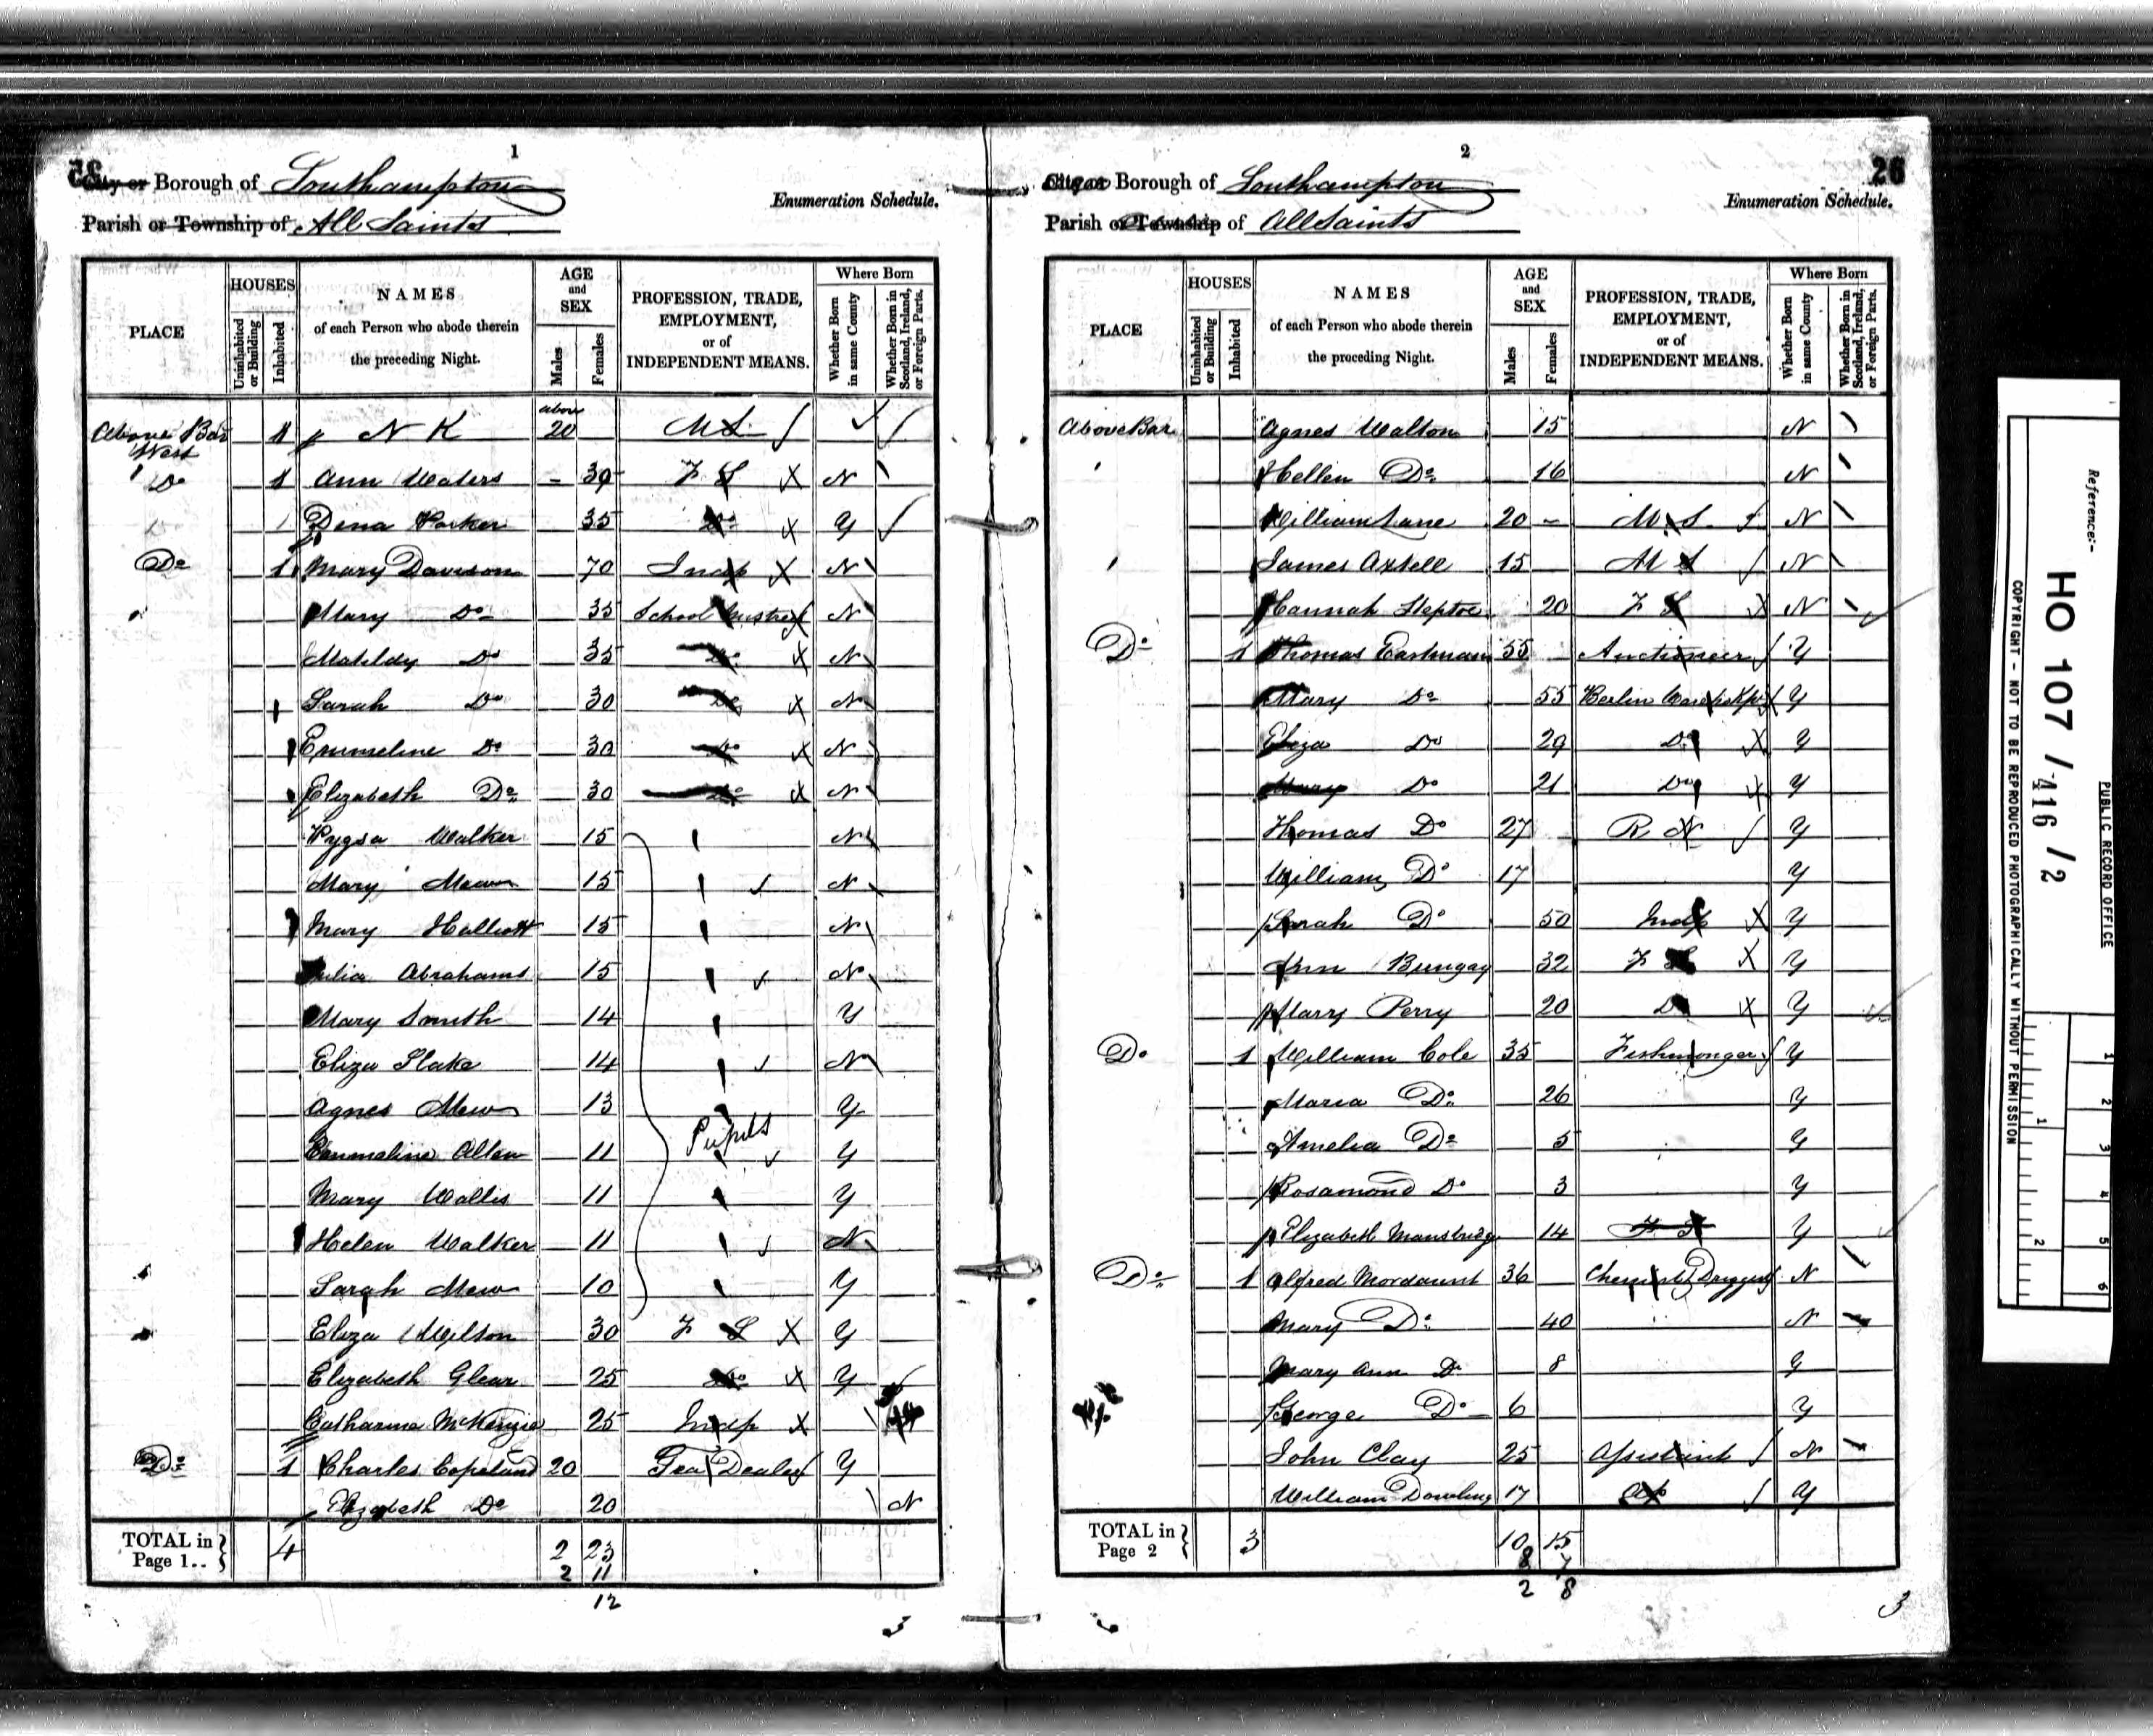 1
City or Borough of Southampton
Enumeration Schedule.
Parish or Township of All Saints
PLACE
HOUSES
Uninhabited or Building
Inhabited
NAMES
of each Person who abode therein
the preceding Night.
AGE
and
SEX
Males
Females
PROFESSION, TRADE,
EMPLOYMENT,
or of
INDEPENDENT MEANS.
Where Born
Whether Born in same County
Whether Born in Scotland, Ireland, or Foreign Parts.
Above Bar West 1 N K above 20 M S
Do 1 Ann Waters - 39 F S N
Dena Parker 35 Do Y
Do 1 Mary Davison 70 Indp N
Mary Do 35 School Mistress N
Matildy Do 35 Do N
Sarah Do 30 Do N
Emmeline Do 30 Do N
Elizabeth Do 30 Do N
Walker 15 N
Mary Mew 15 N
Mary Halliott 15 N
Julia Abrahams 15 N
Mary Smith 14 Y
Eliza Slake 14 N
Agnes Mew 13 Y
Pupils
Emmeline Allen 11 Y
Mary Wallis 11 Y
Helen Walker 11 N
Sarah Mew 10 Y
Eliza Wilson 30 F S Y
Elizabeth Glear 25 Do Y
Catharine McKenzie 25 Indp
Do 1 Charles Copeland 20 Tea Dealer Y
Elizabeth Do 20 N
TOTAL in Page 1.. 4 2 23
2 11
12
3
2
26
City or Borough of Southampton
Enumeration Schedule.
Parish or Township of All Saints
PLACE
HOUSES
Uninhabited or Building
Inhabited
NAMES
of each Person who abode therein
the preceding Night.
AGE
and
SEX
Males
Females
PROFESSION, TRADE,
EMPLOYMENT,
or of
INDEPENDENT MEANS.
Where Born
Whether Born in same County
Whether Born in Scotland, Ireland, or Foreign Parts.
Above Bar Agnes Walton 15 N
Hellen Do 16 N
William Lane 20 - M S N
James Axtell 15 M S N
Hannah Steptoe 20 F S N
Do 1 Thomas Eastman 55 Auctioneer Y
Mary Do 55 Berlin Y
Eliza Do 29 Do Y
Mary Do 21 Do Y
Thomas Do 27 R N Y
William Do 17 Y
Sarah Do 50 Indp Y
Ann Bungay 32 F S Y
Mary Perry 20 Do Y
Do 1 William Cole 35 Fishmonger Y
Maria Do 26 Y
Amelia Do 5 Y
Rosamond Do 3 Y
Elizabeth Mansbridge 14 F S Y
Do 1 Alfred Mordaunt 36 Chemist & Druggist N
Mary Do 40 N
Mary Ann Do 8 Y
George Do 6 Y
John Clay 25 Assistant N
William Dowling 17 Ap Y
TOTAL in Page 2 3 10 15
8 7
2 8
3
Reference:-
HO 107 / 416 / 2
PUBLIC RECORD OFFICE
COPYRIGHT - NOT TO BE REPRODUCED PHOTOGRAPHICALLY WITHOUT PERMISSION
1 2 3 4 5 6
1 2